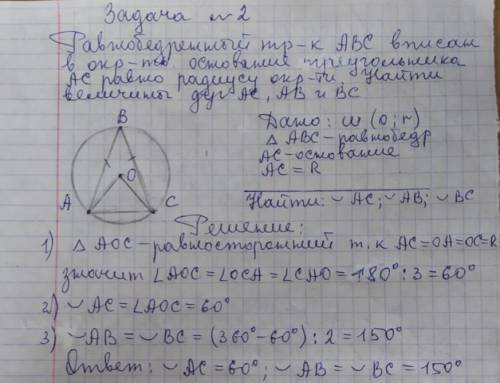 Задача №2
Равнобедренный тр-к ABC вписан
в окр-ть основание треугольника
AC равно радиусу окр-ти. Найти
величины дуг AC, AB и BC
B
O
A
C
Дано: ω (o; r)
△ ABC - равнобедр
AC - основание
AC = R
Найти: ◡ AC; ◡ AB; ◡ BC
Решение:
1) △ AOC - равносторонний т.к AC=OA=OC=R
значит ∠AOC = ∠OCA = ∠CAO = 180° : 3 = 60°
2) ◡ AC = ∠AOC = 60°
3) ◡ AB = ◡ BC = (360° - 60°) : 2 = 150°
Ответ: ◡ AC = 60°; ◡ AB = ◡ BC = 150°